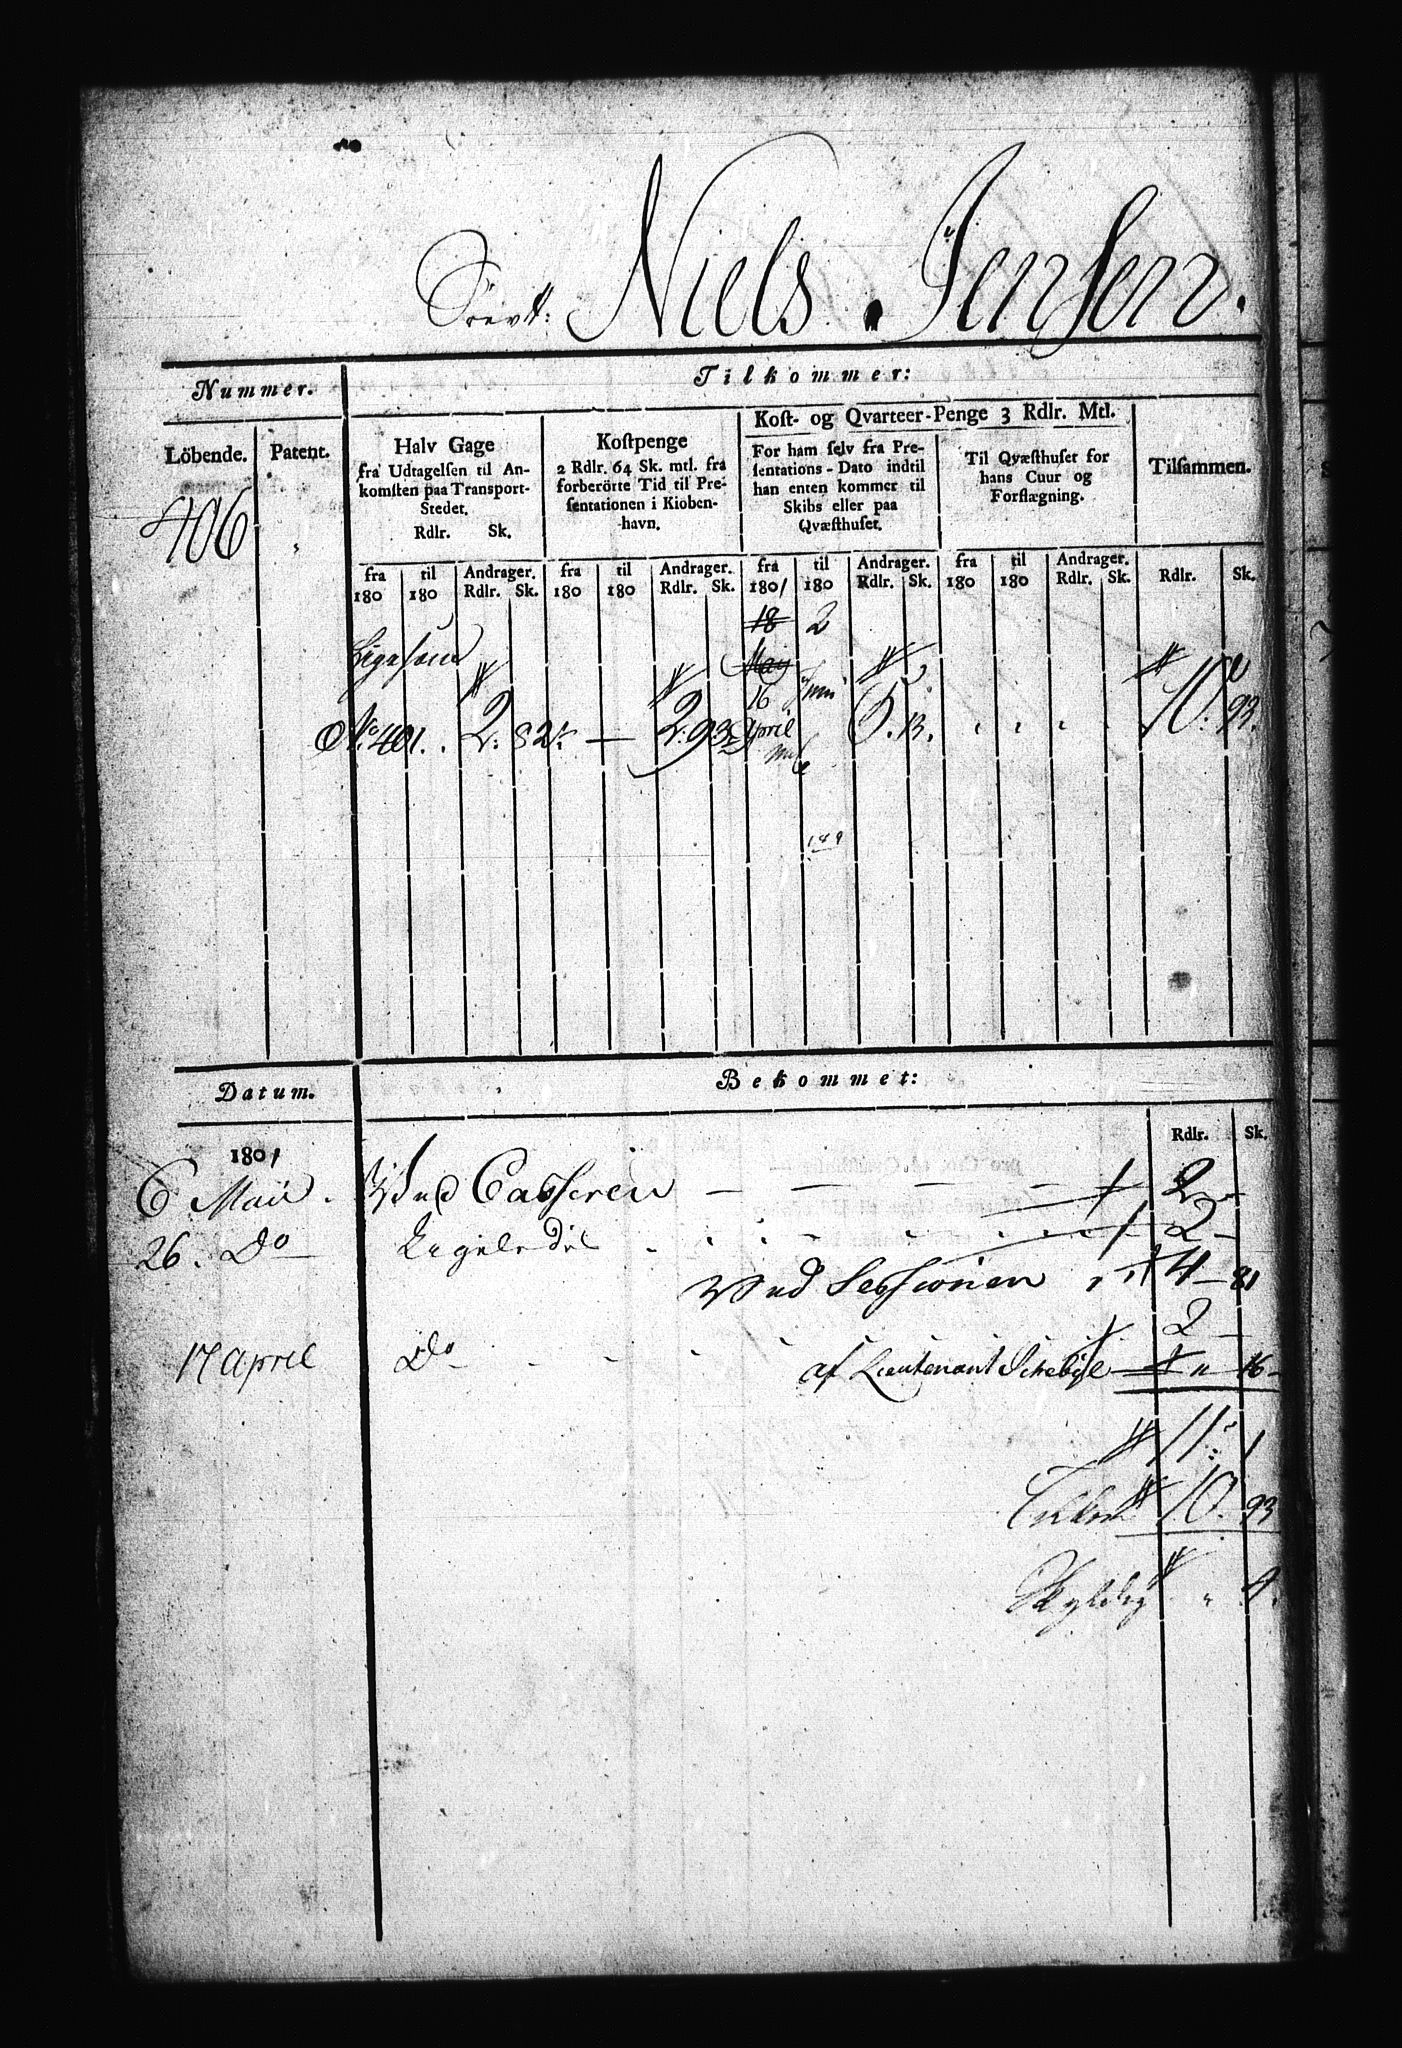 Niels Jensen.
Nummer.
Tilkommer:
Löbende.
Patent.
Halv Gage
fra Udtagelsen til An-
komsten paa Transport-
Stedet.
Rdlr. Sk.
Kostpenge
2 Rdlr. 64 Sk. mtl. fra
forberörte Tid til Pre-
sentationen i Kioben-
havn.
Kost- og Qvarteer-Penge 3 Rdlr. Mtl.
For ham selv fra Pre-
sentations-Dato indtil
han enten kommer til
Skibs eller paa
Qvæsthuset.
Til Qvæsthuset for
hans Cuur og
Forflægning.
Tilsammen.
406
fra 180 til 180 Andrager. Rdlr. Sk.
fra 180 til 180 Andrager. Rdlr. Sk.
fra 1801 til 180 Andrager. Rdlr. Sk.
fra 180 til 180 Andrager. Rdlr. Sk.
Rdlr. Sk.
18 2
Ligesom May
16 Juni
No. 401. 2: 82 — 2: 93 April 5. 13. 10. 93.
189
Datum.
Bekommet:
1801
Rdlr. Sk.
6 Maii. Ved Casseren — — — — 2 —
26. Do Ligeledes 2 —
Ved Sessionen 4 — 81
2 —
17 April Do af Lieutenant Schebÿe " 16
11: 1
10. 93
Skyldig " 4.